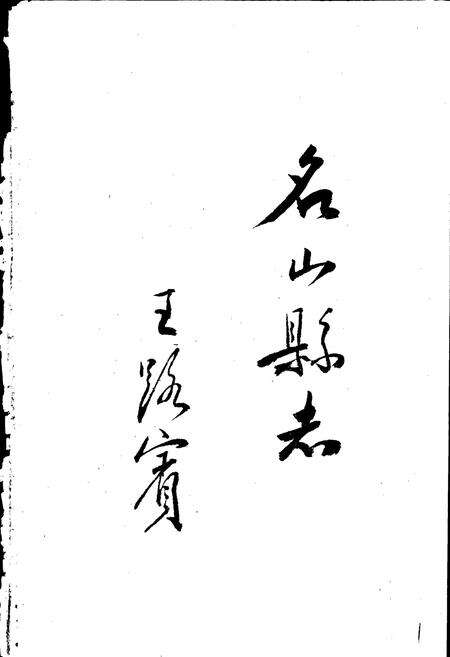 名山縣志
王路賓